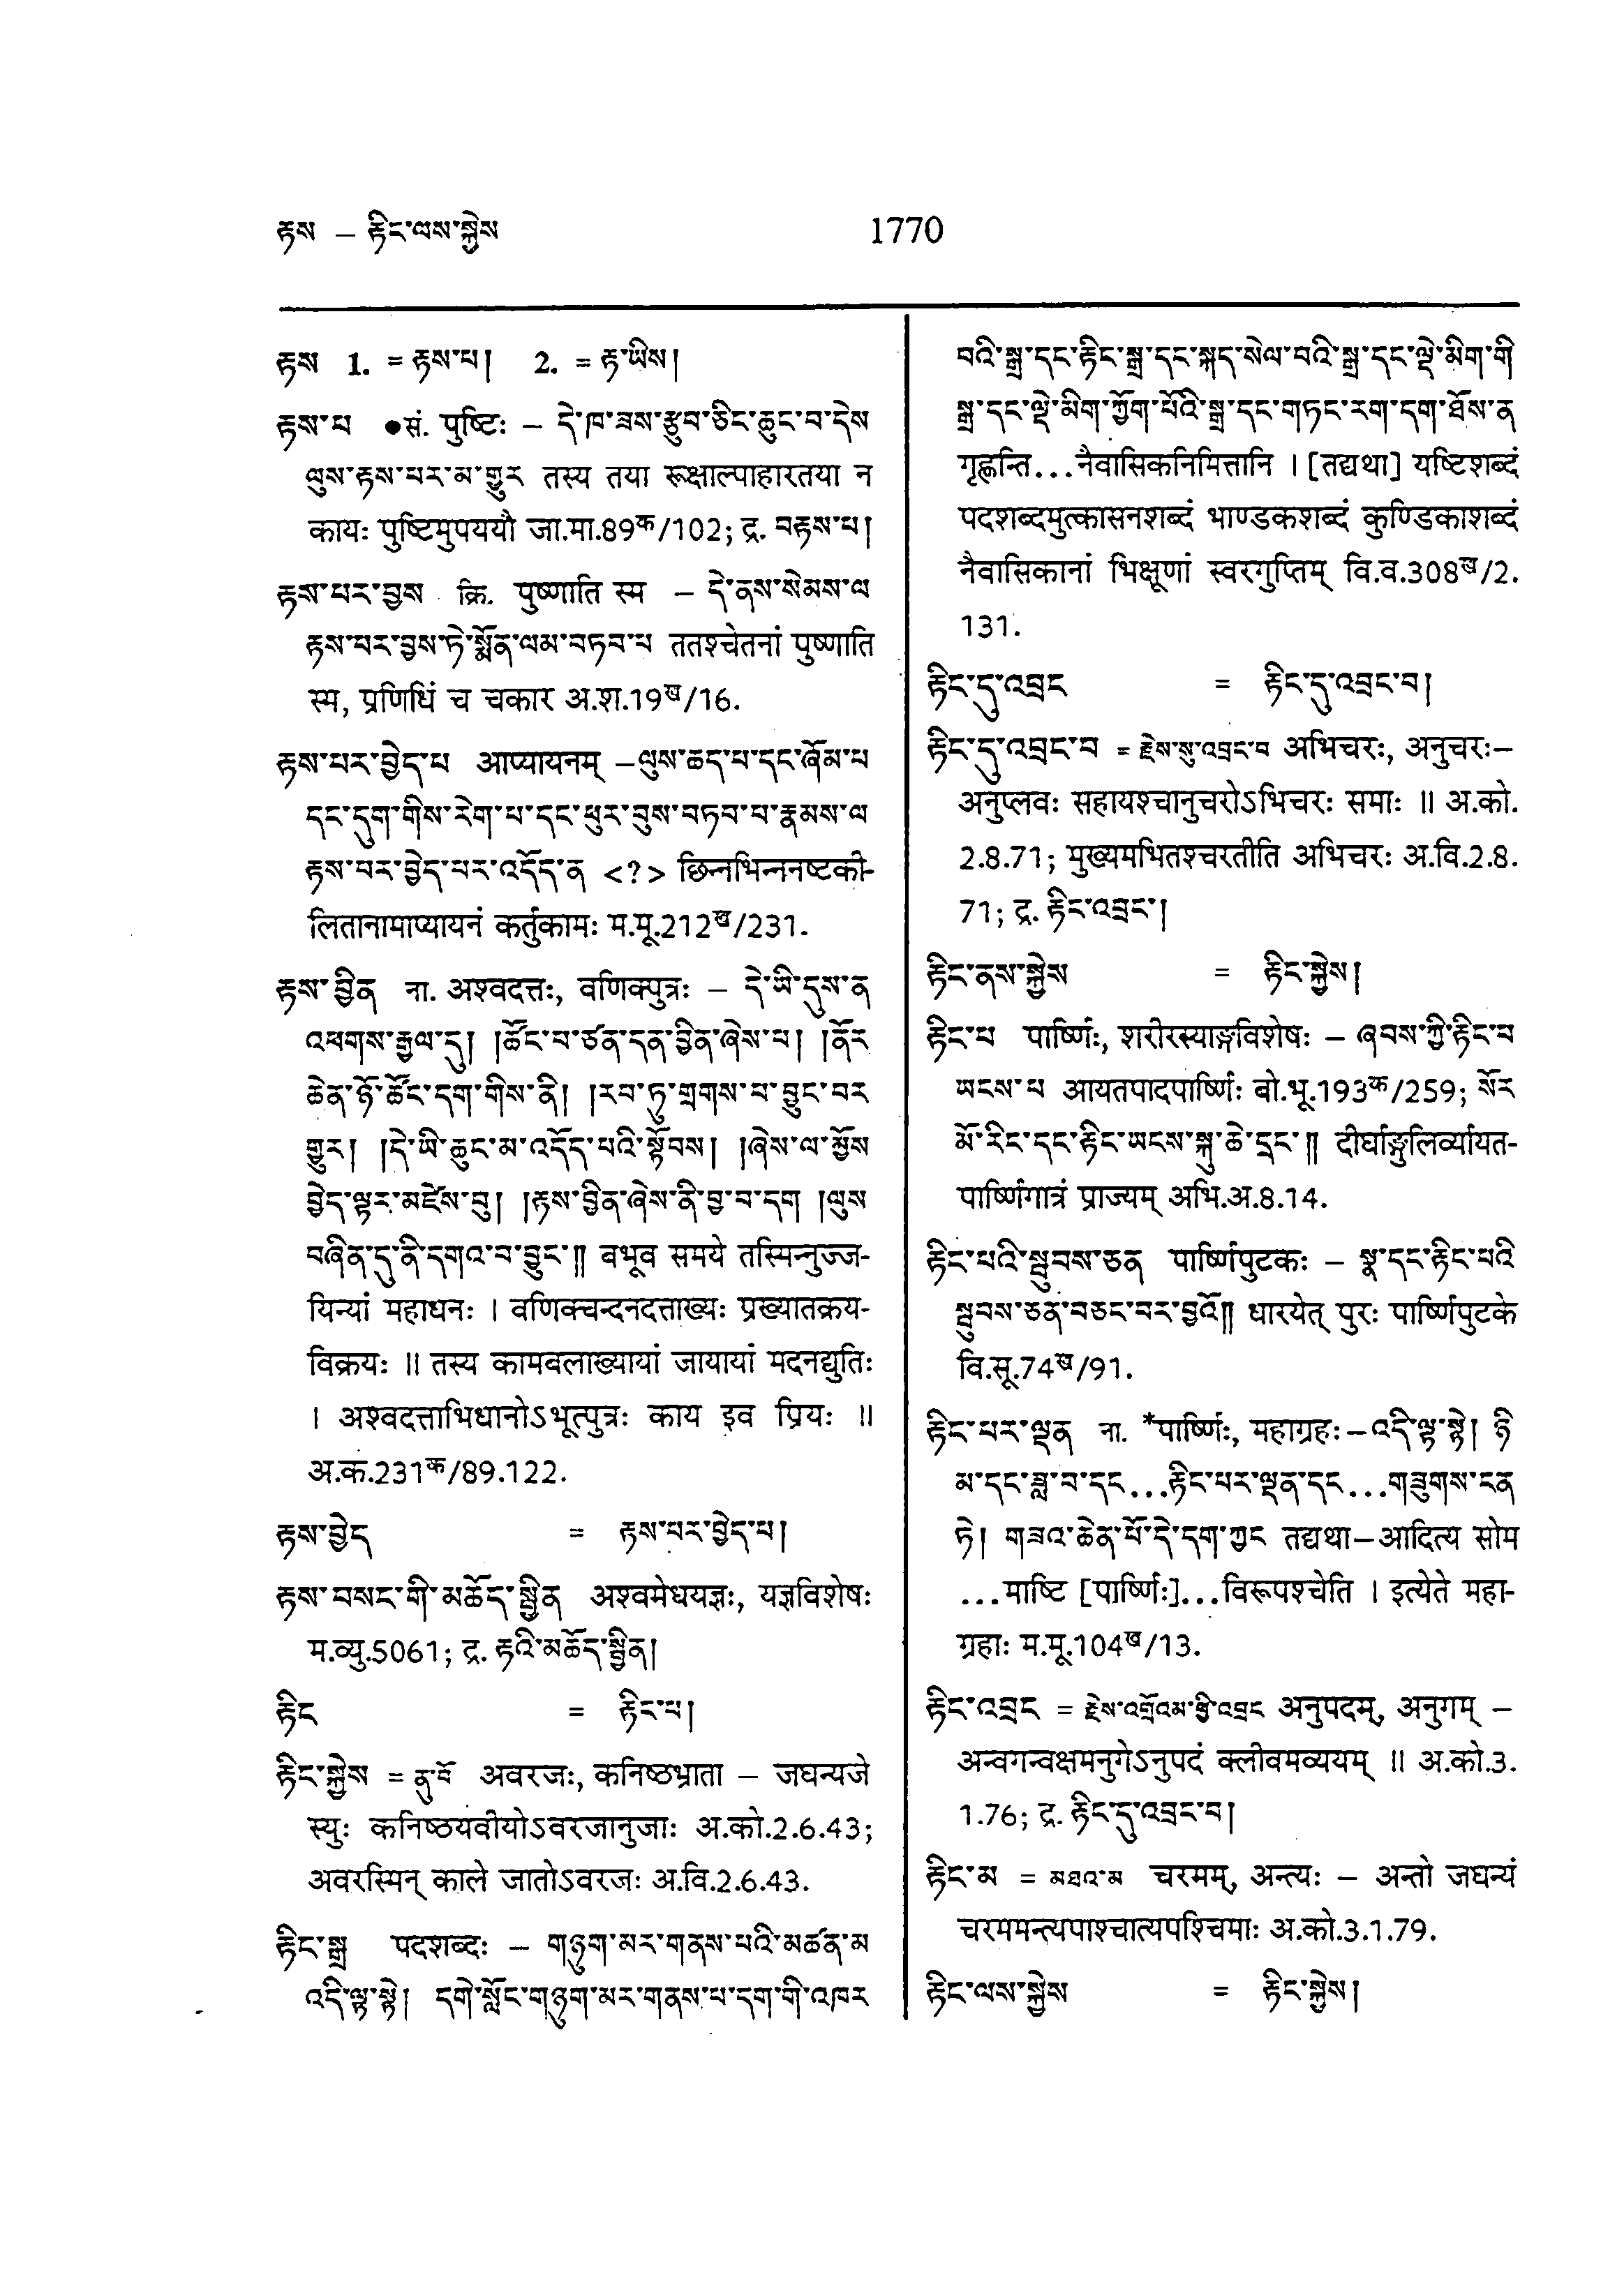 རྟས – རྟིང་ལས་སྐྱེས 1770
རྟས 1. = རྟས་པ། 2. = རྟ་ཡིས།
རྟས་པ ●सं. पुष्टिः – དེ་ཁ་ཟས་རྩུབ་ཅིང་ཆུང་བ་དེས
ལུས་རྟས་པར་མ་གྱུར तस्य तया रूक्षाल्पाहारतया न
कायः पुष्टिमुपययौ जा.मा.89क/102; द्र. བརྟས་པ།
རྟས་པར་བྱས क्रि. पुष्णाति स्म – དེ་ནས་སེམས་ལ
རྟས་པར་བྱས་ཏེ་སྨོན་ལམ་བཏབ་པ ततश्चेतनां पुष्णाति
स्म, प्रणिधिं च चकार अ.श.19ख/16.
རྟས་པར་བྱེད་པ आप्यायनम् –ལུས་ཆད་པ་དང་ཞོམ་པ
དང་དུག་གིས་རེག་པ་དང་ཕུར་བུས་བཏབ་པ་རྣམས་ལ
རྟས་པར་བྱེད་པར་འདོད་ན <?> छिन्नभिन्ननष्टकी-
लितानामाप्यायनं कर्तुकामः म.मू.212ख/231.
རྟས་བྱིན ना. अश्वदत्तः, वणिक्पुत्रः – དེ་ཡི་དུས་ན
འཕགས་རྒྱལ་དུ། །ཚོང་བ་ཙན་དན་བྱིན་ཞེས་པ། །ནོར
ཆེན་ཉོ་ཚོང་དག་གིས་ནི། །རབ་ཏུ་གྲགས་པ་བྱུང་བར
གྱུར། །དེ་ཡི་ཆུང་མ་འདོད་པའི་སྟོབས། །ཞེས་ལ་མྱོས
བྱེད་ལྟར་མཛེས་བུ། །རྟས་བྱིན་ཞེས་ནི་བྱ་བ་དག །ལུས
བཞིན་དུ་ནི་དགའ་བ་བྱུང་༎ बभूव समये तस्मिन्नुज्ज-
यिन्यां महाधनः । वणिक्चन्दनदत्ताख्यः प्रख्यातक्रय-
विक्रयः ॥ तस्य कामबलाख्यायां जायायां मदनद्युतिः
। अश्वदत्ताभिधानोऽभूत्पुत्रः काय इव प्रियः ॥
अ.क.231क/89.122.
རྟས་བྱེད = རྟས་པར་བྱེད་པ།
རྟས་བསང་གི་མཆོད་སྦྱིན अश्वमेधयज्ञः, यज्ञविशेषः
म.व्यु.5061; द्र. རྟའི་མཆོད་སྦྱིན།
རྟིང = རྟིང་པ།
རྟིང་སྐྱེས = ནུ་བོ अवरजः, कनिष्ठभ्राता – जघन्यजे
स्युः कनिष्ठयवीयोऽवरजानुजाः अ.को.2.6.43;
अवरस्मिन् काले जातोऽवरजः अ.वि.2.6.43.
རྟིང་སྒྲ पदशब्दः – གཉུག་མར་གནས་པའི་མཚན་མ
འདི་ལྟ་སྟེ། དགེ་སློང་གཉུག་མར་གནས་པ་དག་གི་འཁར
བའི་སྒྲ་དང་རྟིང་སྒྲ་དང་སྐད་སེལ་བའི་སྒྲ་དང་ལྡེ་མིག་གི
སྒྲ་དང་ལྡེ་མིག་ཀྱོག་པོའི་སྒྲ་དང་གཏང་རག་དག་ཐོས་ན
गृह्णन्ति...नैवासिकनिमित्तानि । [तद्यथा] यष्टिशब्दं
पदशब्दमुत्कासनशब्दं भाण्डकशब्दं कुण्डिकाशब्दं
नैवासिकानां भिक्षूणां स्वरगुप्तिम् वि.व.308ख/2.
131.
རྟིང་དུ་འབྲང = རྟིང་དུ་འབྲང་བ།
རྟིང་དུ་འབྲང་བ = རྗེས་སུ་འབྲང་བ अभिचरः, अनुचरः–
अनुप्लवः सहायश्चानुचरोऽभिचरः समाः ॥ अ.को.
2.8.71; मुख्यमभितश्चरतीति अभिचरः अ.वि.2.8.
71; द्र. རྟིང་འབྲང་།
རྟིང་ནས་སྐྱེས = རྟིང་སྐྱེས།
རྟིང་པ पार्ष्णिः, शरीरस्याङ्गविशेषः – ཞབས་ཀྱི་རྟིང་པ
ཡངས་པ आयतपादपार्ष्णिः बो.भू.193क/259; སོར
མོ་རིང་དང་རྟིང་ཡངས་སྐུ་ཆེ་དྲང་༎ दीर्घाङ्गुलिर्व्यायत-
पार्ष्णिगात्रं प्राज्यम् अभि.अ.8.14.
རྟིང་པའི་སྦུབས་ཅན पार्ष्णिपुटकः – སྣ་དང་རྟིང་པའི
སྦུབས་ཅན་བཅང་བར་བྱའོ༎ धारयेत् पुरः पार्ष्णिपुटके
वि.सू.74ख/91.
རྟིང་པར་ལྡན ना. *पार्ष्णिः, महाग्रहः–འདི་ལྟ་སྟེ། ཉི
མ་དང་ཟླ་བ་དང...རྟིང་པར་ལྡན་དང...གཟུགས་ངན
ཏེ། གཟའ་ཆེན་པོ་དེ་དག་ཀྱང तद्यथा–आदित्य सोम
...माष्टि [पार्ष्णिः]...विरूपश्चेति । इत्येते महा-
ग्रहाः म.मू.104ख/13.
རྟིང་འབྲང = རྗེས་འགྲོའམ་ཕྱི་འབྲང अनुपदम्, अनुगम् –
अन्वगन्वक्षमनुगेऽनुपदं क्लीबमव्ययम् ॥ अ.को.3.
1.76; द्र. རྟིང་དུ་འབྲང་བ།
རྟིང་མ = མཐའ་མ चरमम्, अन्त्यः – अन्तो जघन्यं
चरममन्त्यपाश्चात्यपश्चिमाः अ.को.3.1.79.
རྟིང་ལས་སྐྱེས = རྟིང་སྐྱེས།